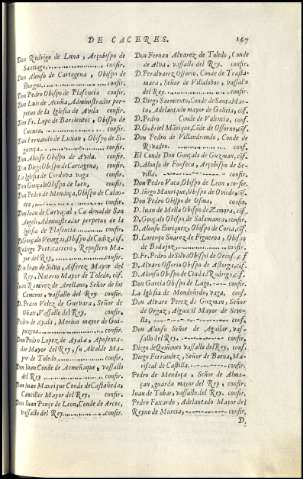 DE CACERES. 147
Don Rodrigo de Luna, Arçobispo de
Santiago confir.
Don Alonso de Cartagena, Obispo de
Burgos confir.
Don Pedro Obispo de Plasencia confir.
Don Luis de Acuña, Administrador per-
petuo de la Iglesia de confir.
Don Fr. Lope de Barrientos, Obispo de
Cuenca confir.
Don Fernando de Luxan, Obispo de Si-
guença confir.
Don Alonso Obispo de confir.
Don Diego Obispo de Cartagena, confir.
La Iglesia de Cordova vaga confir.
Don Gonçalo Obispo de Iaen, confir.
Don Pedro de Mendoça, Obispo de Calao-
confir.
Don Iuan de Carvajal, Cardenal de San
Angel, Administrador perpetuo de la
Iglesia de Plasencia confir.
D. Gonçalo Venegas, Obispo de Cadiz, cf.
Rodrigo Portocarrero, Repostero Ma-
yor del Rey, confir.
Don Iuan de Silva, Alferez Mayor del
Rey, Notario Mayor de Toledo, cf.
Iuan Ramirez de Arellano, Señor de los
Cameros, vassallo del Rey, confir.
D. Pedro Velez de Guevara, Señor de
Oñate, Vassallo del Rey, confir.
Pedro de Ayala, Merino mayor de Gui-
puzcoa confir.
Don Pedro Lopez de Ayala, Aposenta-
dor Mayor del Rey, su Alcalde Ma-
yor de Toledo confir.
Don Iuan Conde de Armeñaque, vassallo
del Rey, confir.
Don Iuan Manrique Conde de Castañeda,
Canciller Mayor del Rey, confir.
Don Iuan Ponce de Leon, Conde de Arcos,
vassallo del Rey confir.
Don Fernan Alvarez de Toledo, Conde
de Alva, vassallo del Rey. confir.
D. Peralvarez Ossorio, Conde de Trasta-
mara, Señor de Villalobos, vassallo
del Rey. confir.
D. Diego Sarmiento, Conde de Santa Mar-
ta, Adelantado mayor de Galicia, cf.
D. Pedro Conde de Valencia, conf.
D. Gabriel Manrique, Conde de Ossorno, cf.
Don Pedro de Villandrando, Conde de
Rivadeo. conf.
El Conde Don Gonçalo de Guzman, cf.
D. Alonso de Fonseca, Arçobispo de Se-
villa. confir.
Don Pedro Vaca, Obispo de Leon confir.
D. Iñigo Manrique, Obispo de Oviedo, cf.
Don Pedro Obispo de Osma, confir.
D. Iuan de Mella Obispo de Zamora, cf.
D. Gonçalo Obispo de Salamanca, confir.
D. Alonso Enriquez, Obispo de Coria, cf.
D. Lorenço Suarez de Figueroa, Obispo
de Badajoz. confir.
D. Fr. Pedro de Silva Obispo de Orense, cf.
D. Alvaro Ossorio Obispo de Astorga, cf.
D. Alonso Obispo de Ciudad Rodrigo, cf.
Don Garcia Obispo de Lugo. confir.
La Iglesia de Mondoñedo, vaga. conf.
Don Alvaro Perez de Guzman, Señor
de Orgaz, Alguazil Mayor de Sevi-
lla. confir.
Don Alonso Señor de Aguilar, vas-
sallo del Rey. confir.
Diego de Quiñones vassallo del Rey, conf.
Diego Fernandez, Señor de Baena, Ma-
riscal de Castilla. confir.
Pedro de Mendoça, Señor de Alma-
çan, guarda mayor del Rey. confir.
Iuan de Tobar, vassallo del Rey, confir.
Pedro Faxardo, Adelantado Mayor del
Reyno de Murcia, confir.
D.